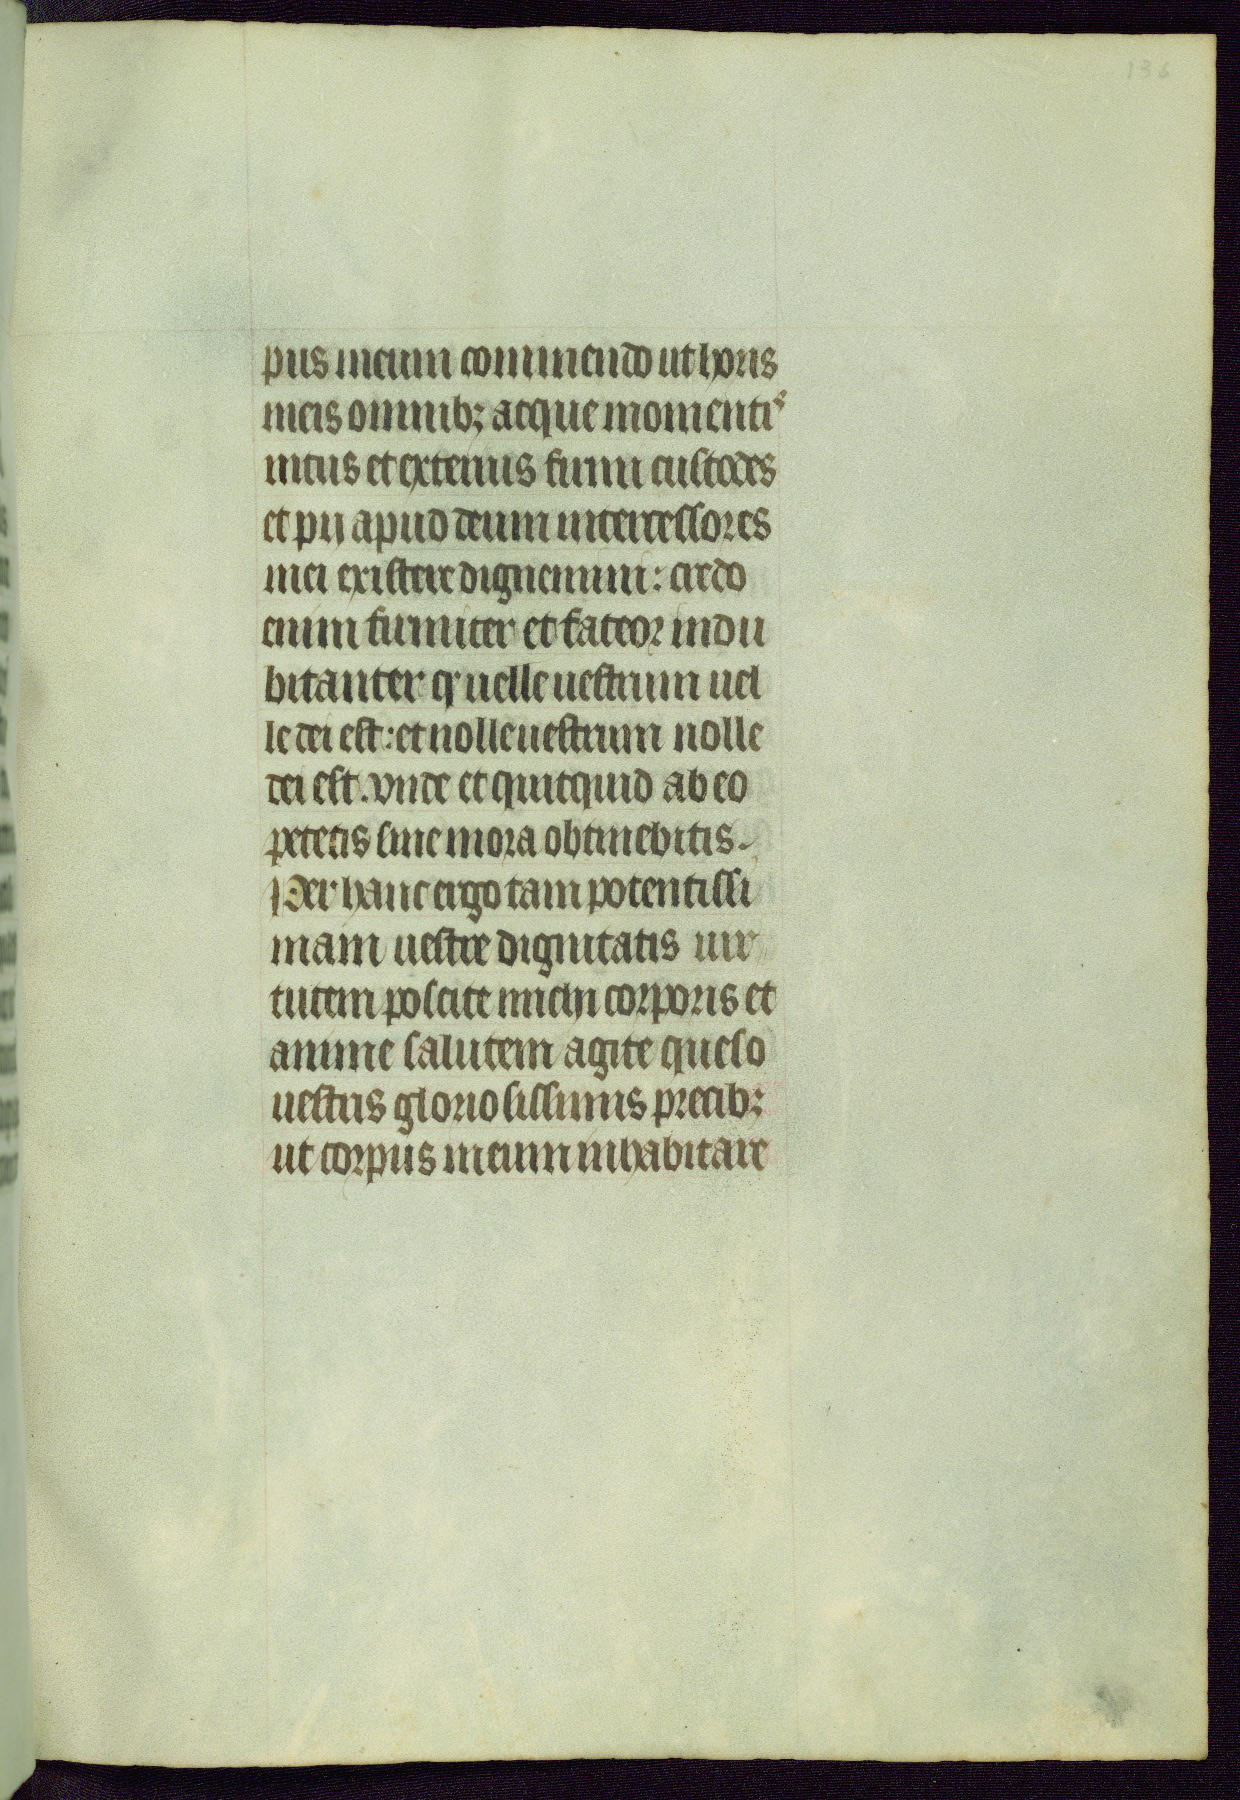 136
pus meum commendo ut horis
meis omnibꝫ atque momentis
intus et exterius firmi custodes
et pij apud deum intercessores
mei existere dignemini: credo
enim firmiter et fateor indu
bitanter qꝛ uelle uestrum uel
le dei est: et nolle uestrum nolle
dei est. vnde et quitquid ab eo
petetis sine mora obtinebitis.
Per hanc ergo tam potentissi
mam uestre dignitatis uir
tutem poscite michi corporis et
anime salutem agite queso
uestris gloriosissimis precibꝫ
ut corpus meum inhabitare